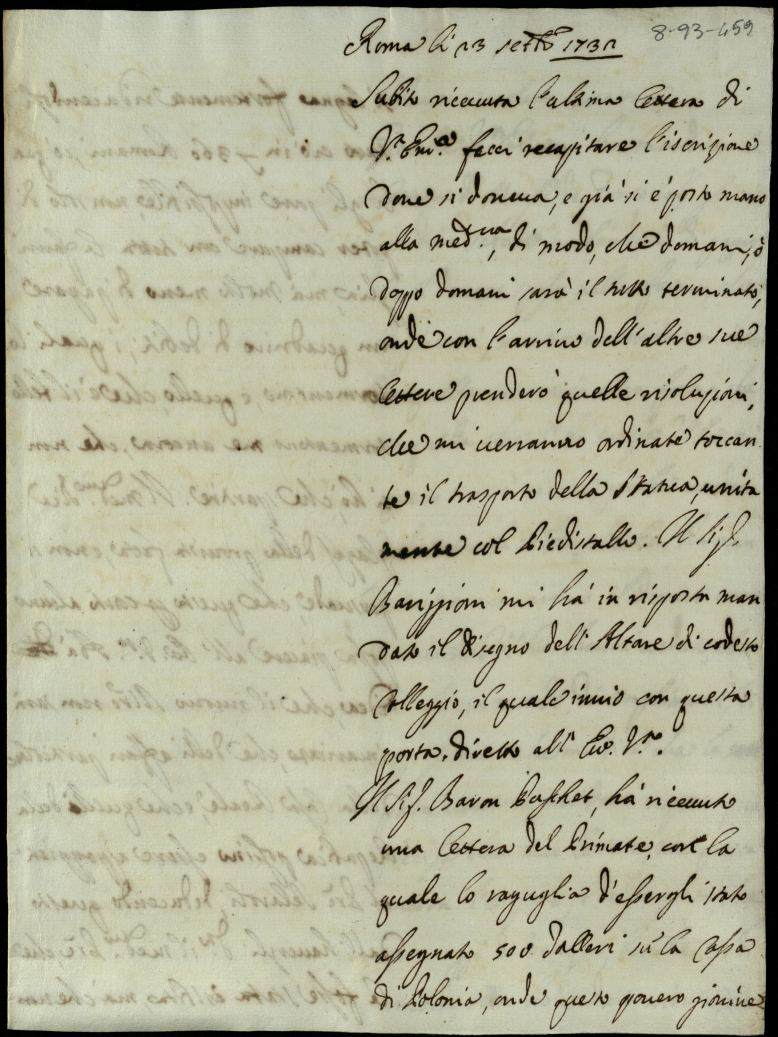 8-93-459
Roma li 23 settbre 1732
Subito riceuuta l'ultima lettera di
V.ra Em.za feci recapitare l'iscrizione
doue si doueua, e già si è posto mano
alla med.ma, di modo, che domani, ò
doppo domani sarà il tutto terminato,
onde con l'arriuo dell'altre sue
lettere prenderò quelle risoluzioni,
che mi uerranno ordinate toccan
te il trasporto della Statua, unita
mente col Piedistallo. Il Sig.
Barigioni mi hà in risposta man
dato il disegno dell'Altare di codesto
Colleggio, il quale inuio con questa
posta, diretto all'Em. V.ra.
Il Sig. Baron Puschet, hà riceuuto
una lettera del Primate, con la
quale lo raguglia d'essergli stato
assegnato 500 dalleri sù la Cassa
di Polonia, onde questo pouero giouine